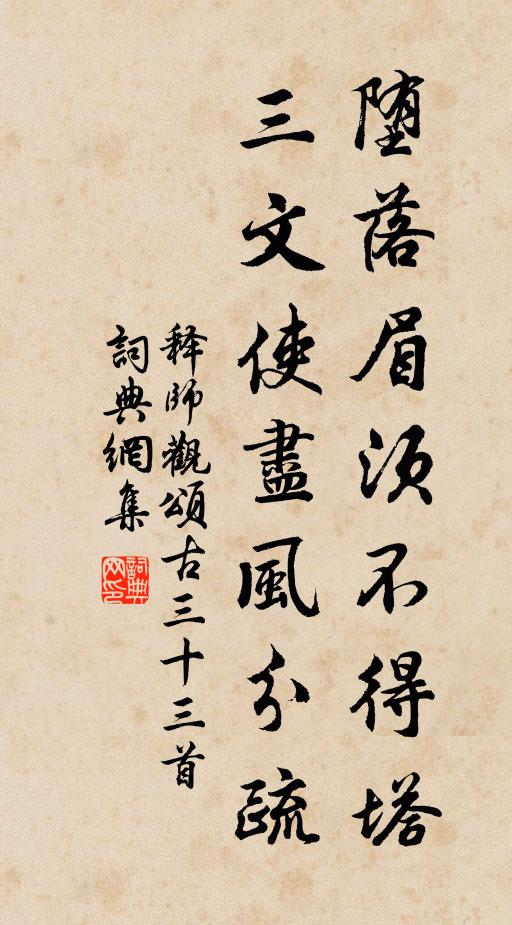 堕落眉须不得塔
三文使盡風分疏
释師觀頌古三十三首
詞典網集
詞典
网印